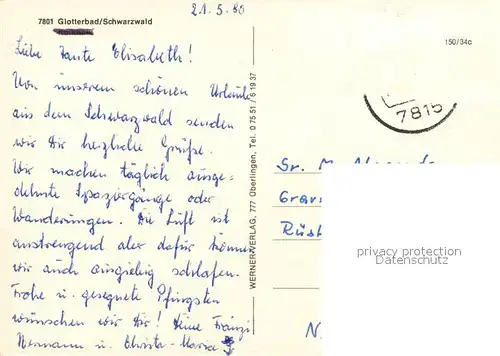 21.5.80
7801 Glotterbad/Schwarzwald
150/34c
7815
Liebe Tante Elisabeth!
Von unserem schönen Urlaub
aus dem Schwarzwald senden
wir Dir herzliche Grüße.
Wir machen täglich ausge-
dehnte Spaziergänge oder
Wanderungen. Die Luft ist
anstrengend aber dafür können
wir auch ausgiebig schlafen.
Frohe u. gesegnete Pfingsten
wünschen wir Dir! Deine Franzi
Hermann u. Christa-Maria
WERNER-VERLAG, 777 Überlingen, Tel. 0 75 51 / 6 19 37
Sr. M.
privacy protection
Datenschutz